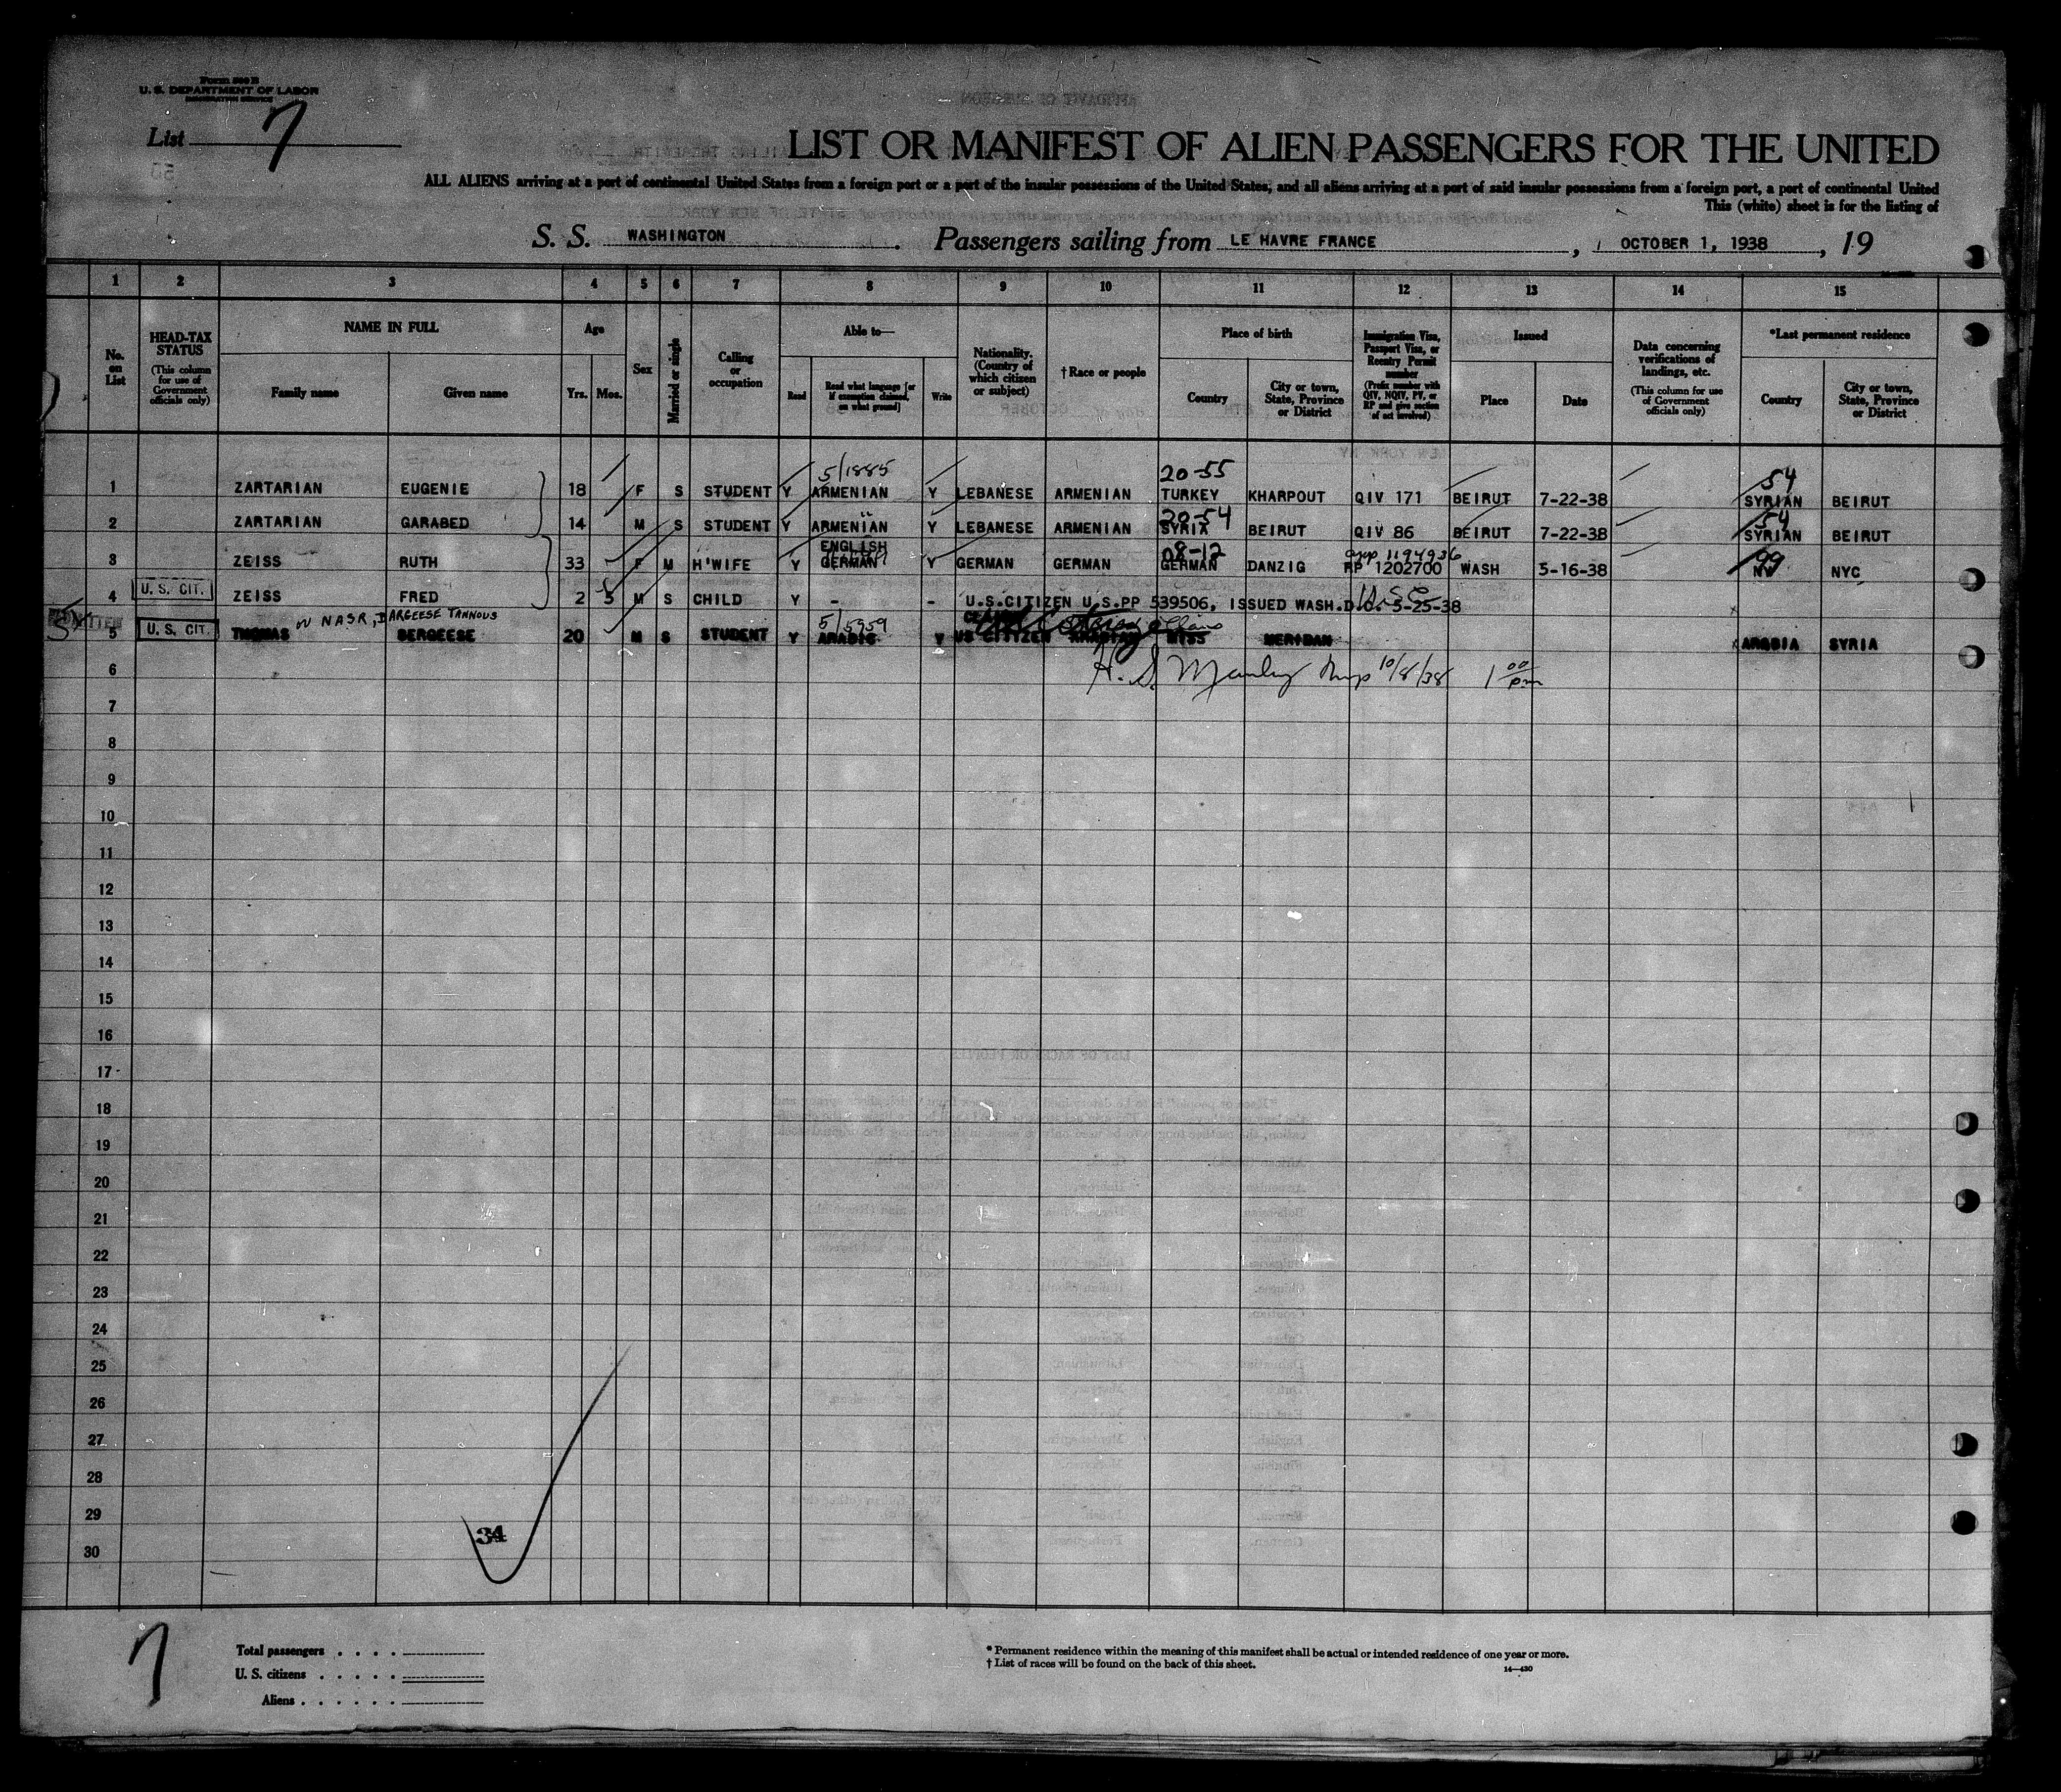 Form 500 B
U. S. DEPARTMENT OF LABOR
IMMIGRATION SERVICE
List 7
LIST OR MANIFEST OF ALIEN PASSENGERS FOR THE UNITED
ALL ALIENS arriving at a port of continental United States from a foreign port or a port of the insular possessions of the United States, and all aliens arriving at a port of said insular possessions from a foreign port, a port of continental United
This (white) sheet is for the listing of
S. S. WASHINGTON. Passengers sailing from LE HAVRE FRANCE, OCTOBER 1, 1938, 19
1 2 3 4 5 6 7 8 9 10 11 12 13 14 15
No. on List
HEAD-TAX STATUS (This column for use of Government officials only)
NAME IN FULL
Family name
Given name
Age
Yrs. Mos.
Sex
Married or single
Calling or occupation
Able to—
Read
Read what language [or if exemption claimed, on what ground]
Write
Nationality. (Country of which citizen or subject)
† Race or people
Place of birth
Country
City or town, State, Province or District
Immigration Visa, Passport Visa, or Reentry Permit number
(Prefix number with QIV, NQIV, PV, or RP and give section of act involved)
Issued
Place
Date
Data concerning verifications of landings, etc.
(This column for use of Government officials only)
*Last permanent residence
Country
City or town, State, Province or District
5/1885 20-55 54
1 ZARTARIAN EUGENIE 18 F S STUDENT Y ARMENIAN Y LEBANESE ARMENIAN TURKEY KHARPOUT QIV 171 BEIRUT 7-22-38 SYRIAN BEIRUT
" 20-54 54
2 ZARTARIAN GARABED 14 M S STUDENT Y ARMENIAN Y LEBANESE ARMENIAN SYRIA BEIRUT QIV 86 BEIRUT 7-22-38 SYRIAN BEIRUT
ENGLISH 08-12 1194936 99
3 ZEISS RUTH 33 F M H'WIFE Y GERMAN Y GERMAN GERMAN GERMAN DANZIG RP 1202700 WASH 5-16-38 NY NYC
4 U. S. CIT. ZEISS FRED 2 5 M S CHILD Y - - U.S.CITIZEN U.S.PP 539506, ISSUED WASH.D.C. 5-25-38
or NASR, DARGEESE TANNOUS 5/5959
5 U. S. CIT. THOMAS GERGEESE 20 M S STUDENT Y ARABIC Y US CITIZEN ARABIAN MISS MERIDAN ARABIA SYRIA
6 H. S. Manley Insp 10/8/38 1 00 pm
7
8
9
10
11
12
13
14
15
16
17
18
19
20
21
22
23
24
25
26
27
28
29
30
34
7
Total passengers . . . .
U. S. citizens . . . . .
Aliens . . . . . .
* Permanent residence within the meaning of this manifest shall be actual or intended residence of one year or more.
† List of races will be found on the back of this sheet.
14—430